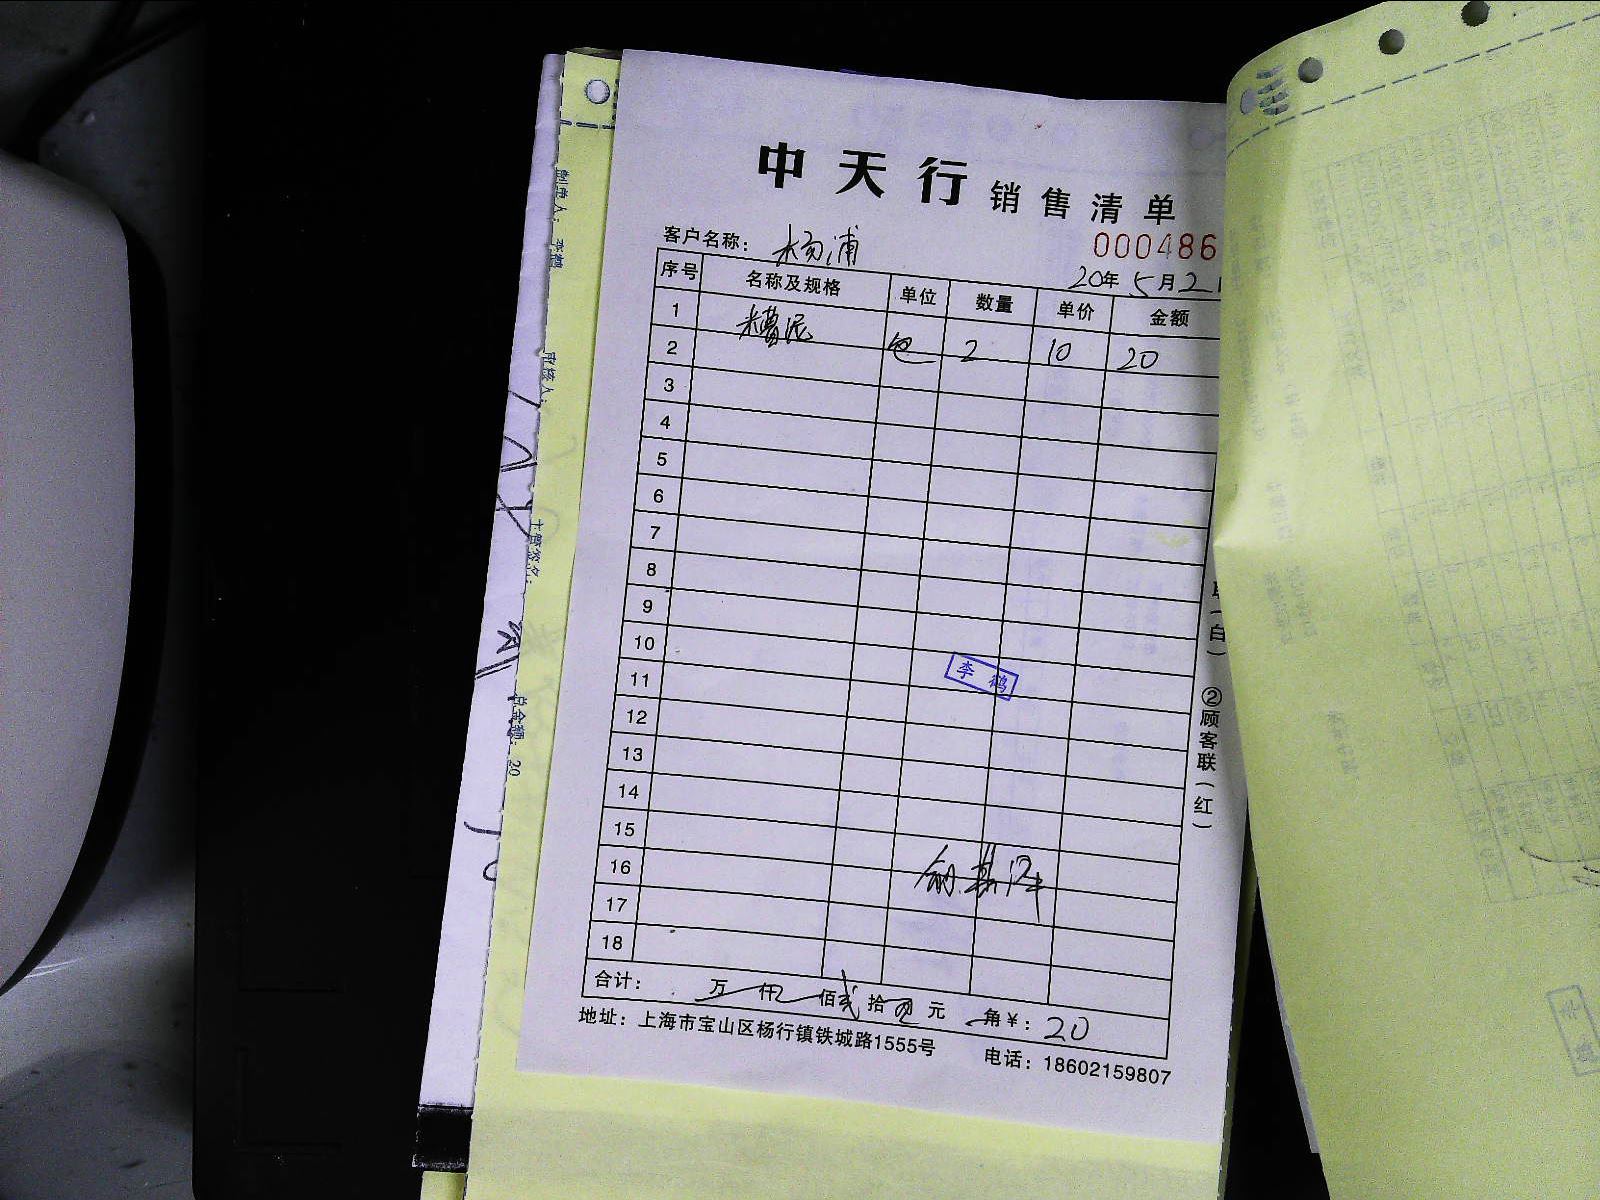 中天行 销售清单
客户名称： 杨浦
000486
20年 5月2
序号 名称及规格 单位 数量 单价 金额
1 糟泥 包 2 10 20
2
3
4
5
6
7
8
9
10
11
12
13
14
15
16
17
18
李鹤
合计： 万 仟 佰 贰 拾 元 角¥： 20
地址：上海市宝山区杨行镇铁城路1555号 电话：18602159807
（白） ②顾客联（红）
制单人： 李鹤
审核人：
主管签名：
总金额： 20